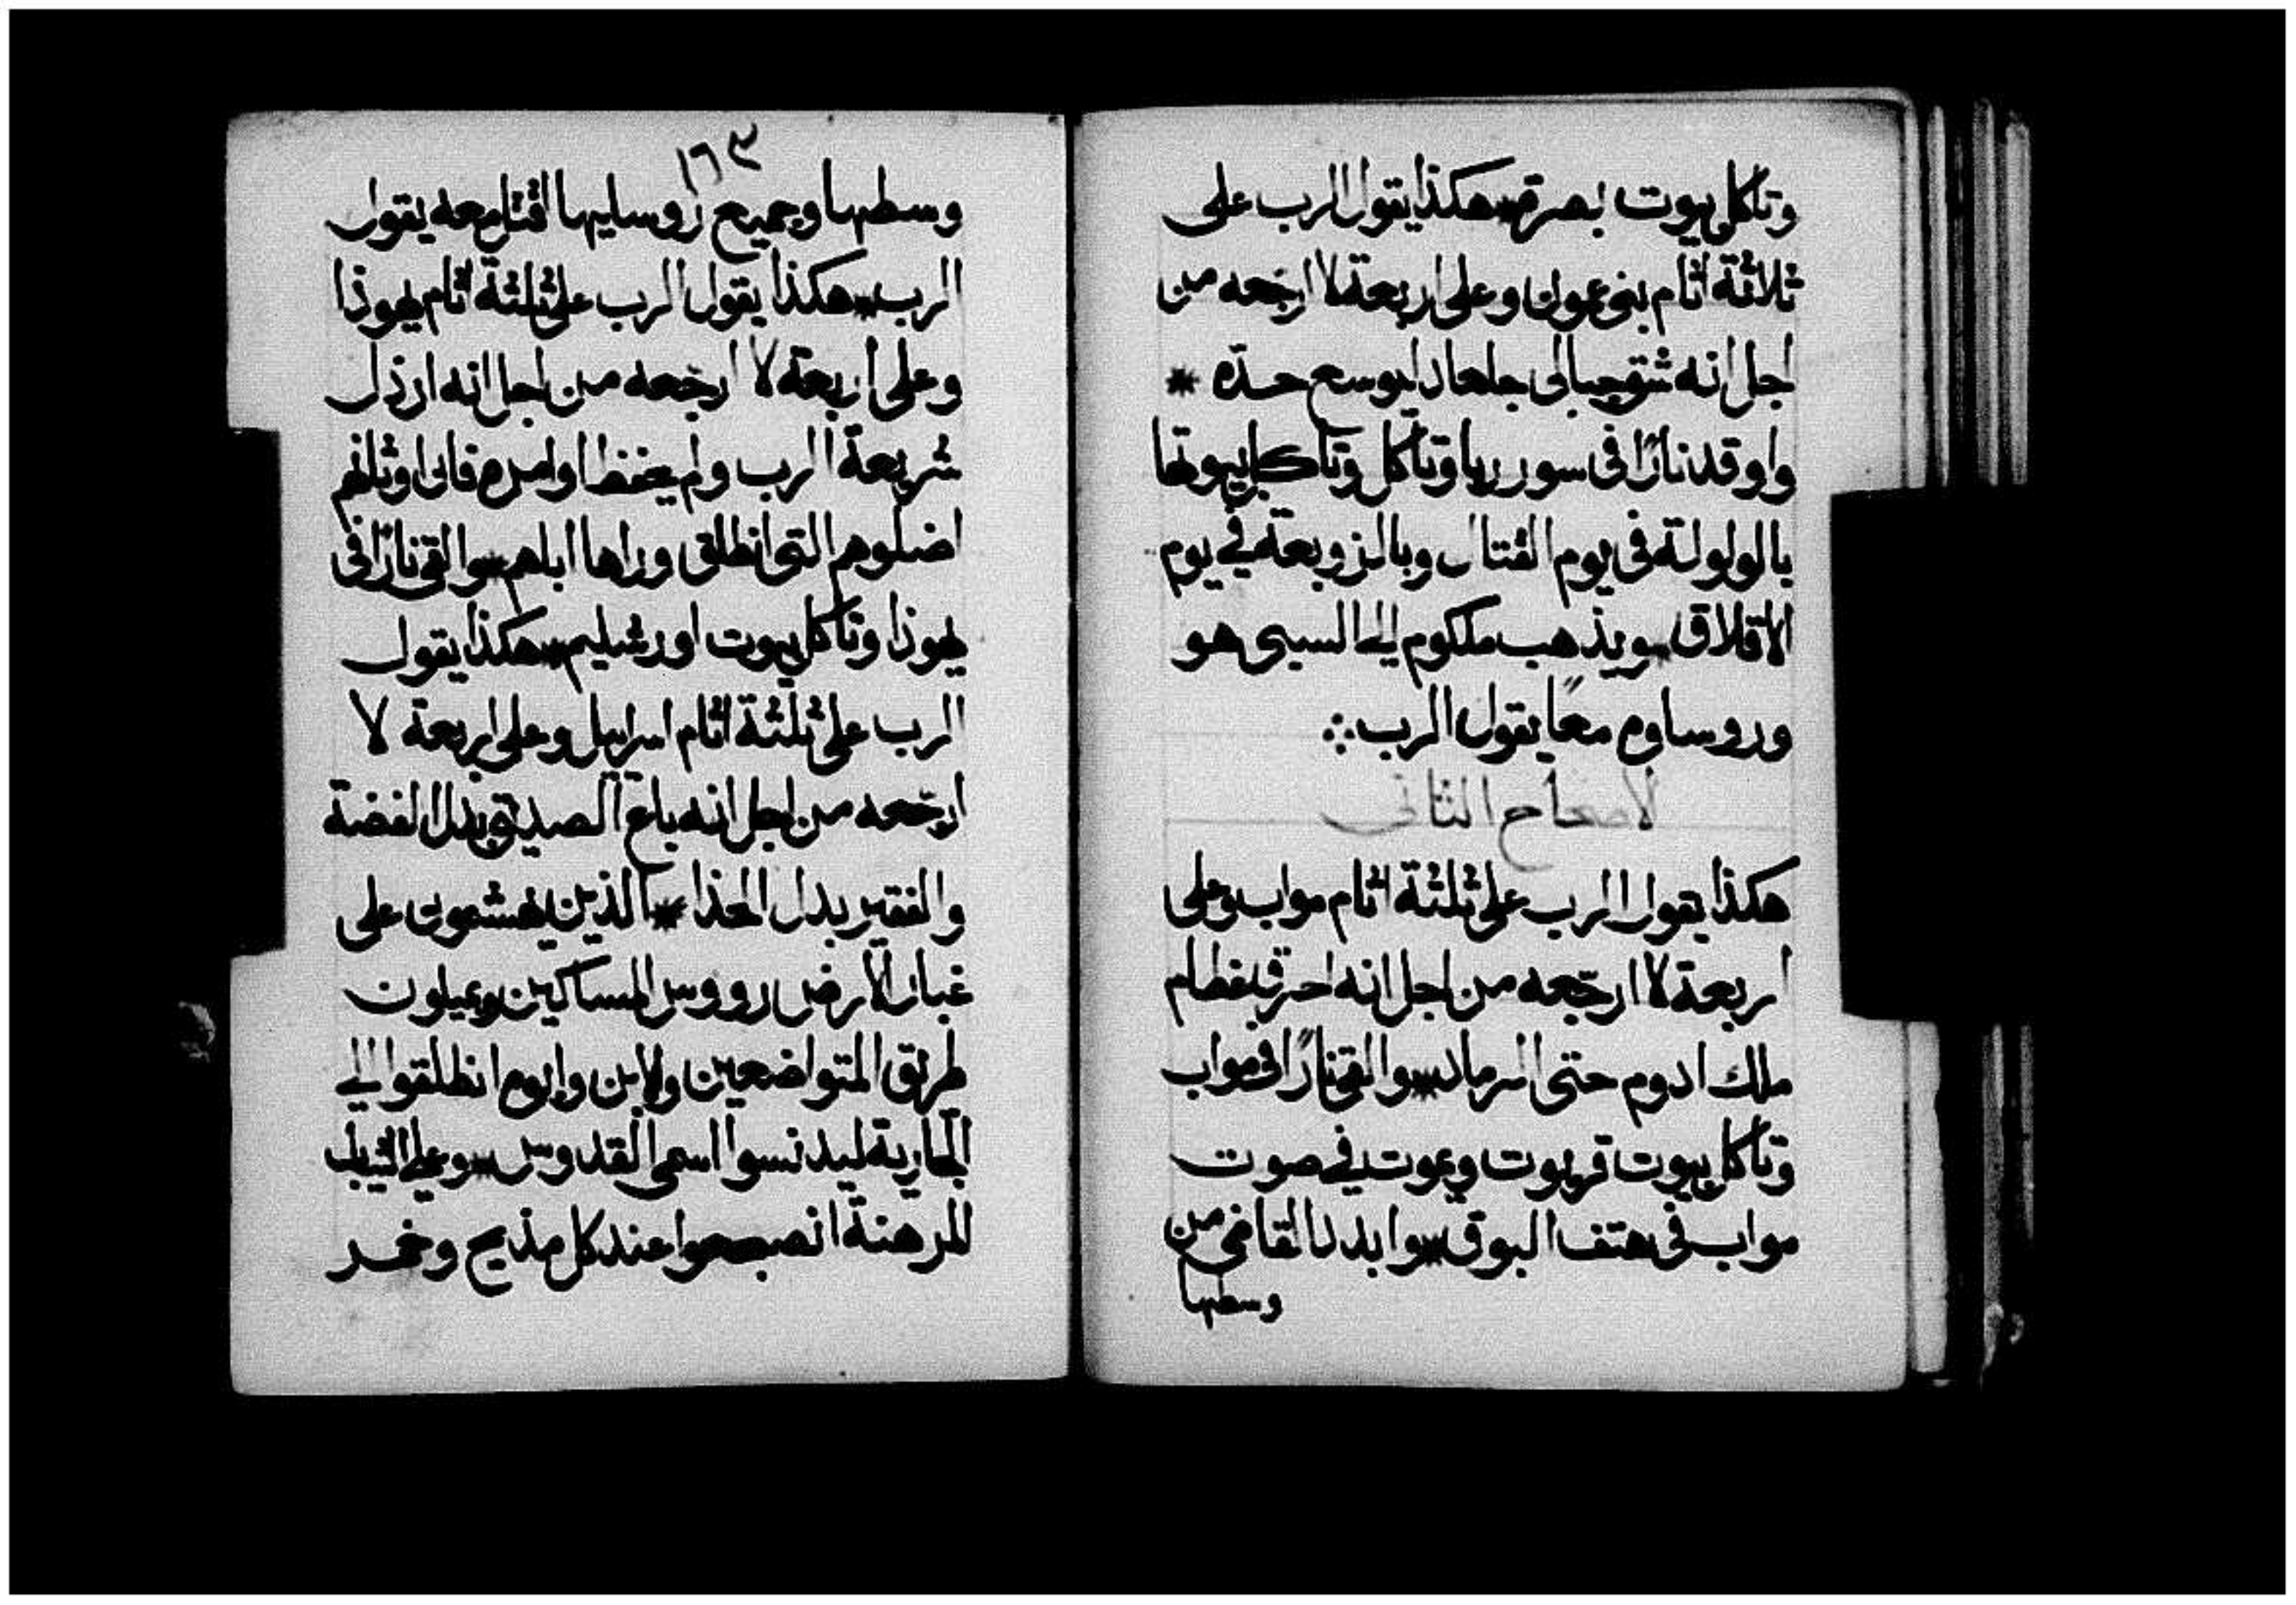 وتاكل بيوت بصرة * هكذا يقول الرب على
ثلاثة اثام بني عمون وعلى اربعة لا ارجعه من
اجل انه شق حبالى جلعاد ليوسع حدّه *
واوقد نارًا في سور ربا وتاكل وتاكل بيوتها
بالولولة في يوم القتال وبالزوبعة في يوم
الاقلاق * ويذهب ملكوم الى السبى هو
وروساوه معًا يقول الرب
الاصحاح الثاني
هكذا يقول الرب على ثلثة اثام مواب وعلى
اربعة لا ارجّعه من اجل انه احرق عظام
ملك ادوم حتى الرماد * والقى نارًا في مواب
وتاكل بيوت قريوت ويموت في صوت
مواب في هتف البوق * وابدد القاضي من
وسطها
١٦٣
وسطها وجميع روسايها اقتل معه يقول
الرب * هكذا يقول الرب على ثلثة اثام يهوذا
وعلى اربعة لا ارجّعه من اجل انه ارذل
شريعة الرب ولم يحفظ اوامره فان اوثانهم
اضلوهم التى انطلق وراها اباهم * والقى نارًا في
يهوذا وتاكل بيوت اورشليم * هكذا يقول
الرب على ثلثة اثام اسراييل وعلى اربعة لا
ارجّعه من اجل انه باع الصديق بدل الفضة
والفقير بدل الحذا * الذين يهشمون على
غبار الارض رووس المساكين ويميلون
طريق المتواضعين والابن وابوه انطلقوا الى
الجارية ليدنسوا اسمى القدوس * وعلى الثياب
المرهنة انصبحوا عند كل مذبح وخمر